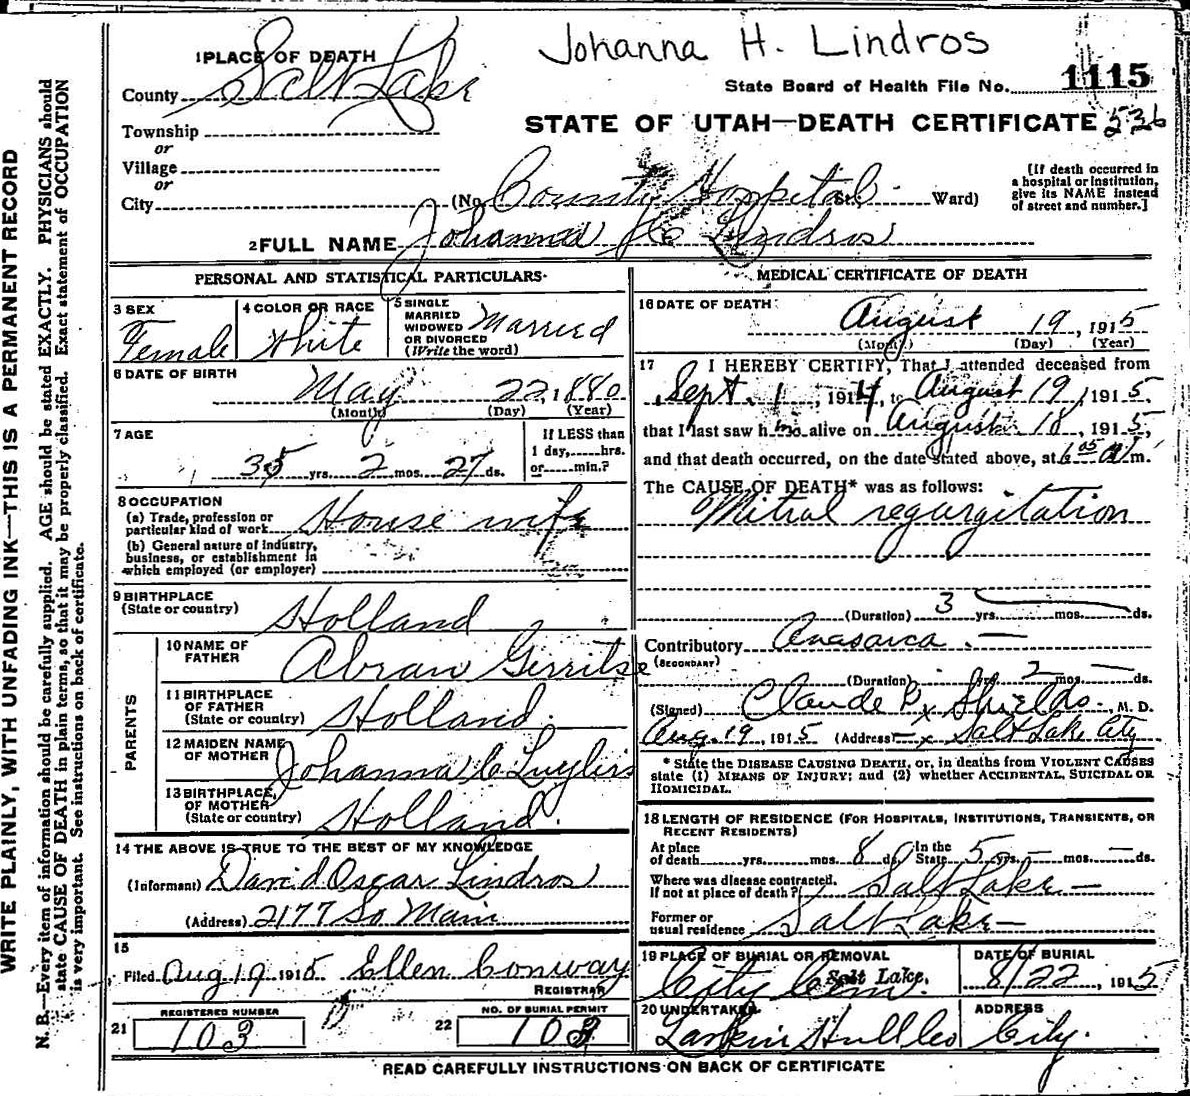 Johanna H. Lindros
1 PLACE OF DEATH
County Salt Lake
State Board of Health File No. 1115
STATE OF UTAH—DEATH CERTIFICATE 536
Township
or
Village
or
City (No. County Hospital St. Ward)
[If death occurred in a hospital or institution, give its NAME instead of street and number.]
2 FULL NAME Johanna H Lindros
PERSONAL AND STATISTICAL PARTICULARS
3 SEX Female
4 COLOR OR RACE White
5 SINGLE MARRIED WIDOWED OR DIVORCED (Write the word) Married
6 DATE OF BIRTH May 22, 1880
(Month) (Day) (Year)
7 AGE 35 yrs. 2 mos. 27 ds.
If LESS than 1 day, hrs. or min.?
8 OCCUPATION
(a) Trade, profession or particular kind of work House wife
(b) General nature of industry, business, or establishment in which employed (or employer)
9 BIRTHPLACE (State or country) Holland
PARENTS
10 NAME OF FATHER Abram Gerritse
11 BIRTHPLACE OF FATHER (State or country) Holland.
12 MAIDEN NAME OF MOTHER Johanna C
13 BIRTHPLACE OF MOTHER (State or country) Holland.
14 THE ABOVE IS TRUE TO THE BEST OF MY KNOWLEDGE
(Informant) David Oscar Lindros
(Address) 2177 So Main
15
Filed Aug 19 1915 Ellen Conway
REGISTRAR
21 REGISTERED NUMBER 103
22 NO. OF BURIAL PERMIT 103
MEDICAL CERTIFICATE OF DEATH
16 DATE OF DEATH August 19, 1915
(Month) (Day) (Year)
17 I HEREBY CERTIFY, That I attended deceased from
Sept. 1, 1914, to August 19, 1915.
that I last saw h alive on August 18, 1915,
and that death occurred, on the date stated above, at 6 05 A m.
The CAUSE OF DEATH* was as follows:
Mitral regurgitation
(Duration) 3 yrs. mos. ds.
Contributory Anasarca.—
(SECONDARY)
(Duration) yrs. 2 mos. — ds.
(Signed) Claude Shields, M. D.
Aug. 19, 1915 (Address) Salt Lake City
* State the DISEASE CAUSING DEATH, or, in deaths from VIOLENT CAUSES
state (1) MEANS OF INJURY; and (2) whether ACCIDENTAL, SUICIDAL OR
HOMICIDAL.
18 LENGTH OF RESIDENCE (FOR HOSPITALS, INSTITUTIONS, TRANSIENTS, OR
RECENT RESIDENTS)
At place of death yrs. mos. 8 ds. In the State 5 yrs. — mos. — ds.
Where was disease contracted, if not at place of death? Salt Lake —
Former or usual residence Salt Lake —
19 PLACE OF BURIAL OR REMOVAL City Cem. Salt Lake.
DATE OF BURIAL 8/22, 1915
20 UNDERTAKER Larkin
ADDRESS City.
READ CAREFULLY INSTRUCTIONS ON BACK OF CERTIFICATE
WRITE PLAINLY, WITH UNFADING INK—THIS IS A PERMANENT RECORD
N. B.—Every item of information should be carefully supplied. AGE should be stated EXACTLY. PHYSICIANS should
state CAUSE OF DEATH in plain terms, so that it may be properly classified. Exact statement of OCCUPATION
is very important. See instructions on back of certificate.